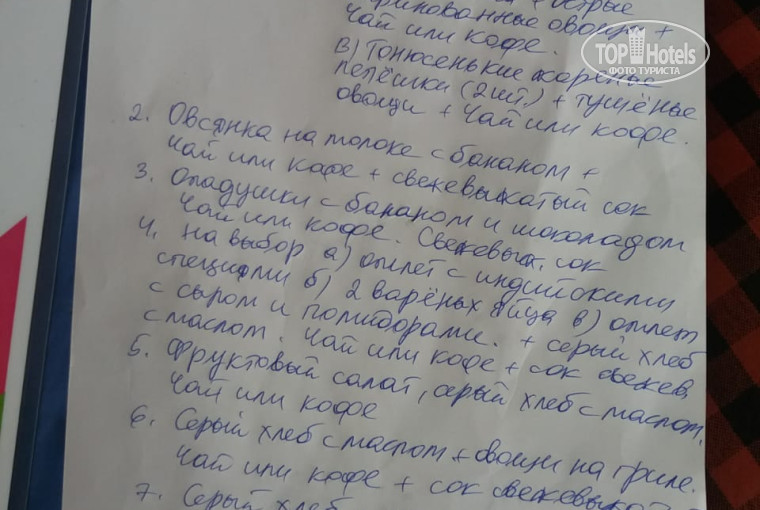 + острые
овощи +
чай или кофе.
TOP Hotels
ФОТО ТУРИСТА
в) Тонюсенькие жареные
лепёшки (2 шт.) + тушёные
овощи + чай или кофе.
2. Овсянка на молоке с бананом +
чай или кафе + свежевыжатый сок
3. Оладушки с бананом и шоколадом
чай или кофе. Свежевыж. сок
4. на выбор а) омлет с индийскими
специями б) 2 варёных яйца в) омлет
с сыром и помидорами. + серый хлеб
с маслом. Чай или кофе + сок свежев.
5. Фруктовый салат, серый хлеб с маслом,
чай или кофе
6. Серый хлеб с маслом + овощи на гриле.
чай или кофе + сок
7. Серый хлеб